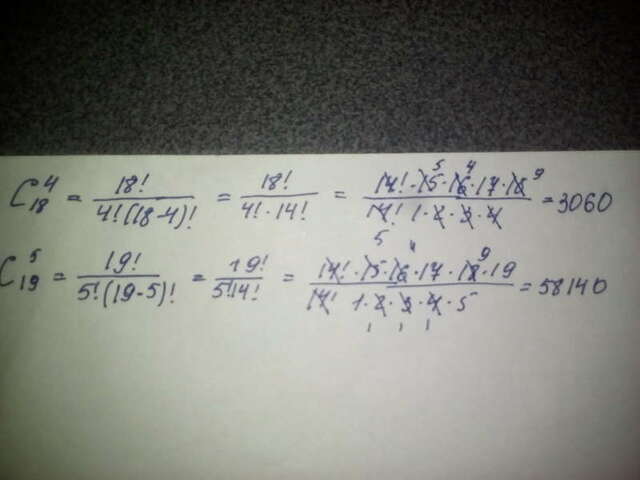 C₁₈⁴ = 18! / 4!(18-4)! = 18! / 4!·14! = 14!·15·16·17·18 / 14! 1·2·3·4 = 3060
C₁₉⁵ = 19! / 5!(19-5)! = 19! / 5!14! = 14!·15·16·17·18·19 / 14! 1·2·3·4·5 = 58140